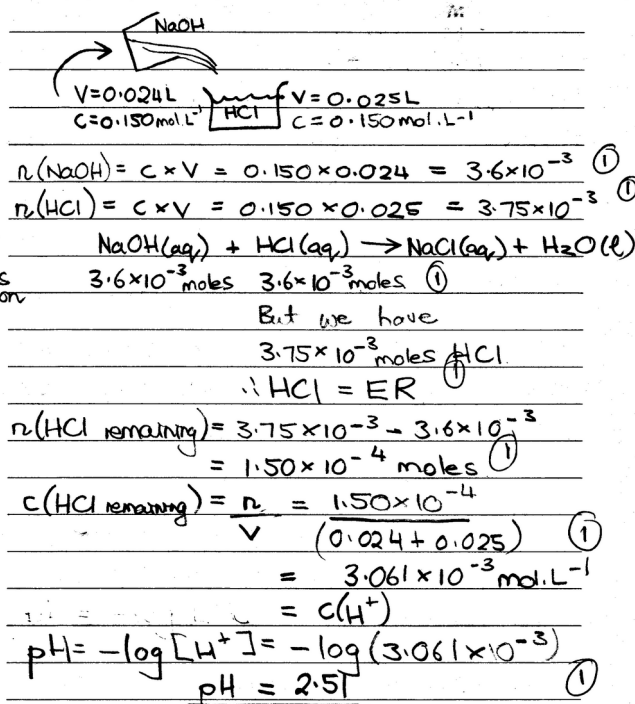 NaOH
V=0.024L HCl V=0.025L
C=0.150mol.L⁻¹ C=0.150mol.L-1
n(NaOH) = C×V = 0.150×0.024 = 3.6×10⁻³ ①
n(HCl) = C×V = 0.150×0.025 = 3.75×10⁻³ ①
NaOH(aq) + HCl(aq) → NaCl(aq) + H₂O(l)
3.6×10⁻³ moles 3.6×10⁻³ moles ①
But we have
3.75×10⁻³ moles HCl
∴ HCl = ER ①
n(HCl remaining) = 3.75×10-³ - 3.6×10⁻³
= 1.50×10⁻⁴ moles ①
C(HCl remaining) = n/V = 1.50×10⁻⁴/(0.024+0.025) ①
= 3.061×10⁻³ mol.L⁻¹
= C(H⁺)
pH = -log[H⁺] = -log(3.061×10⁻³)
pH = 2.51 ①